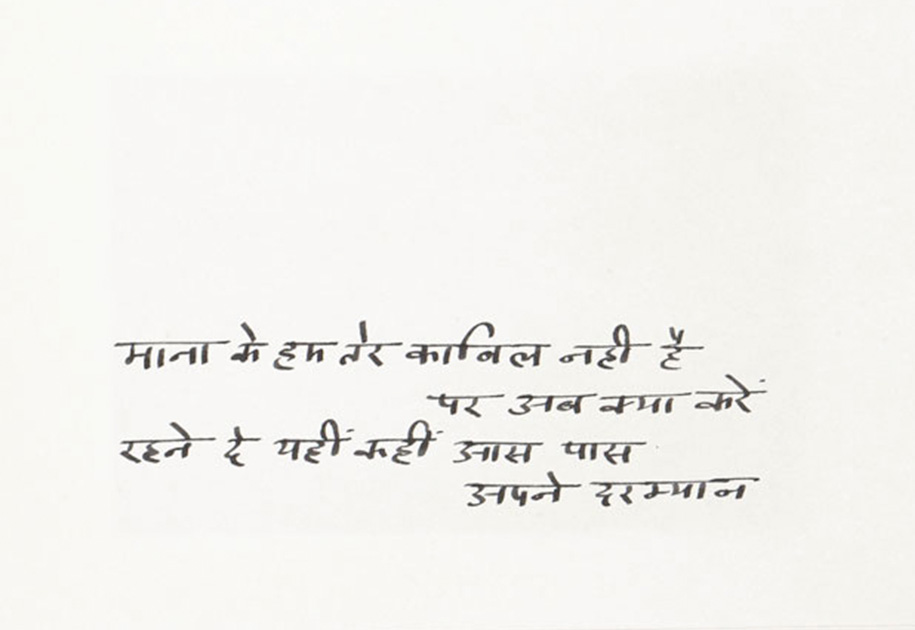 माना के हम तेरे काबिल नही है
पर अब क्या करें
रहने दे यहीं कहीं आस पास
अपने दरम्यान